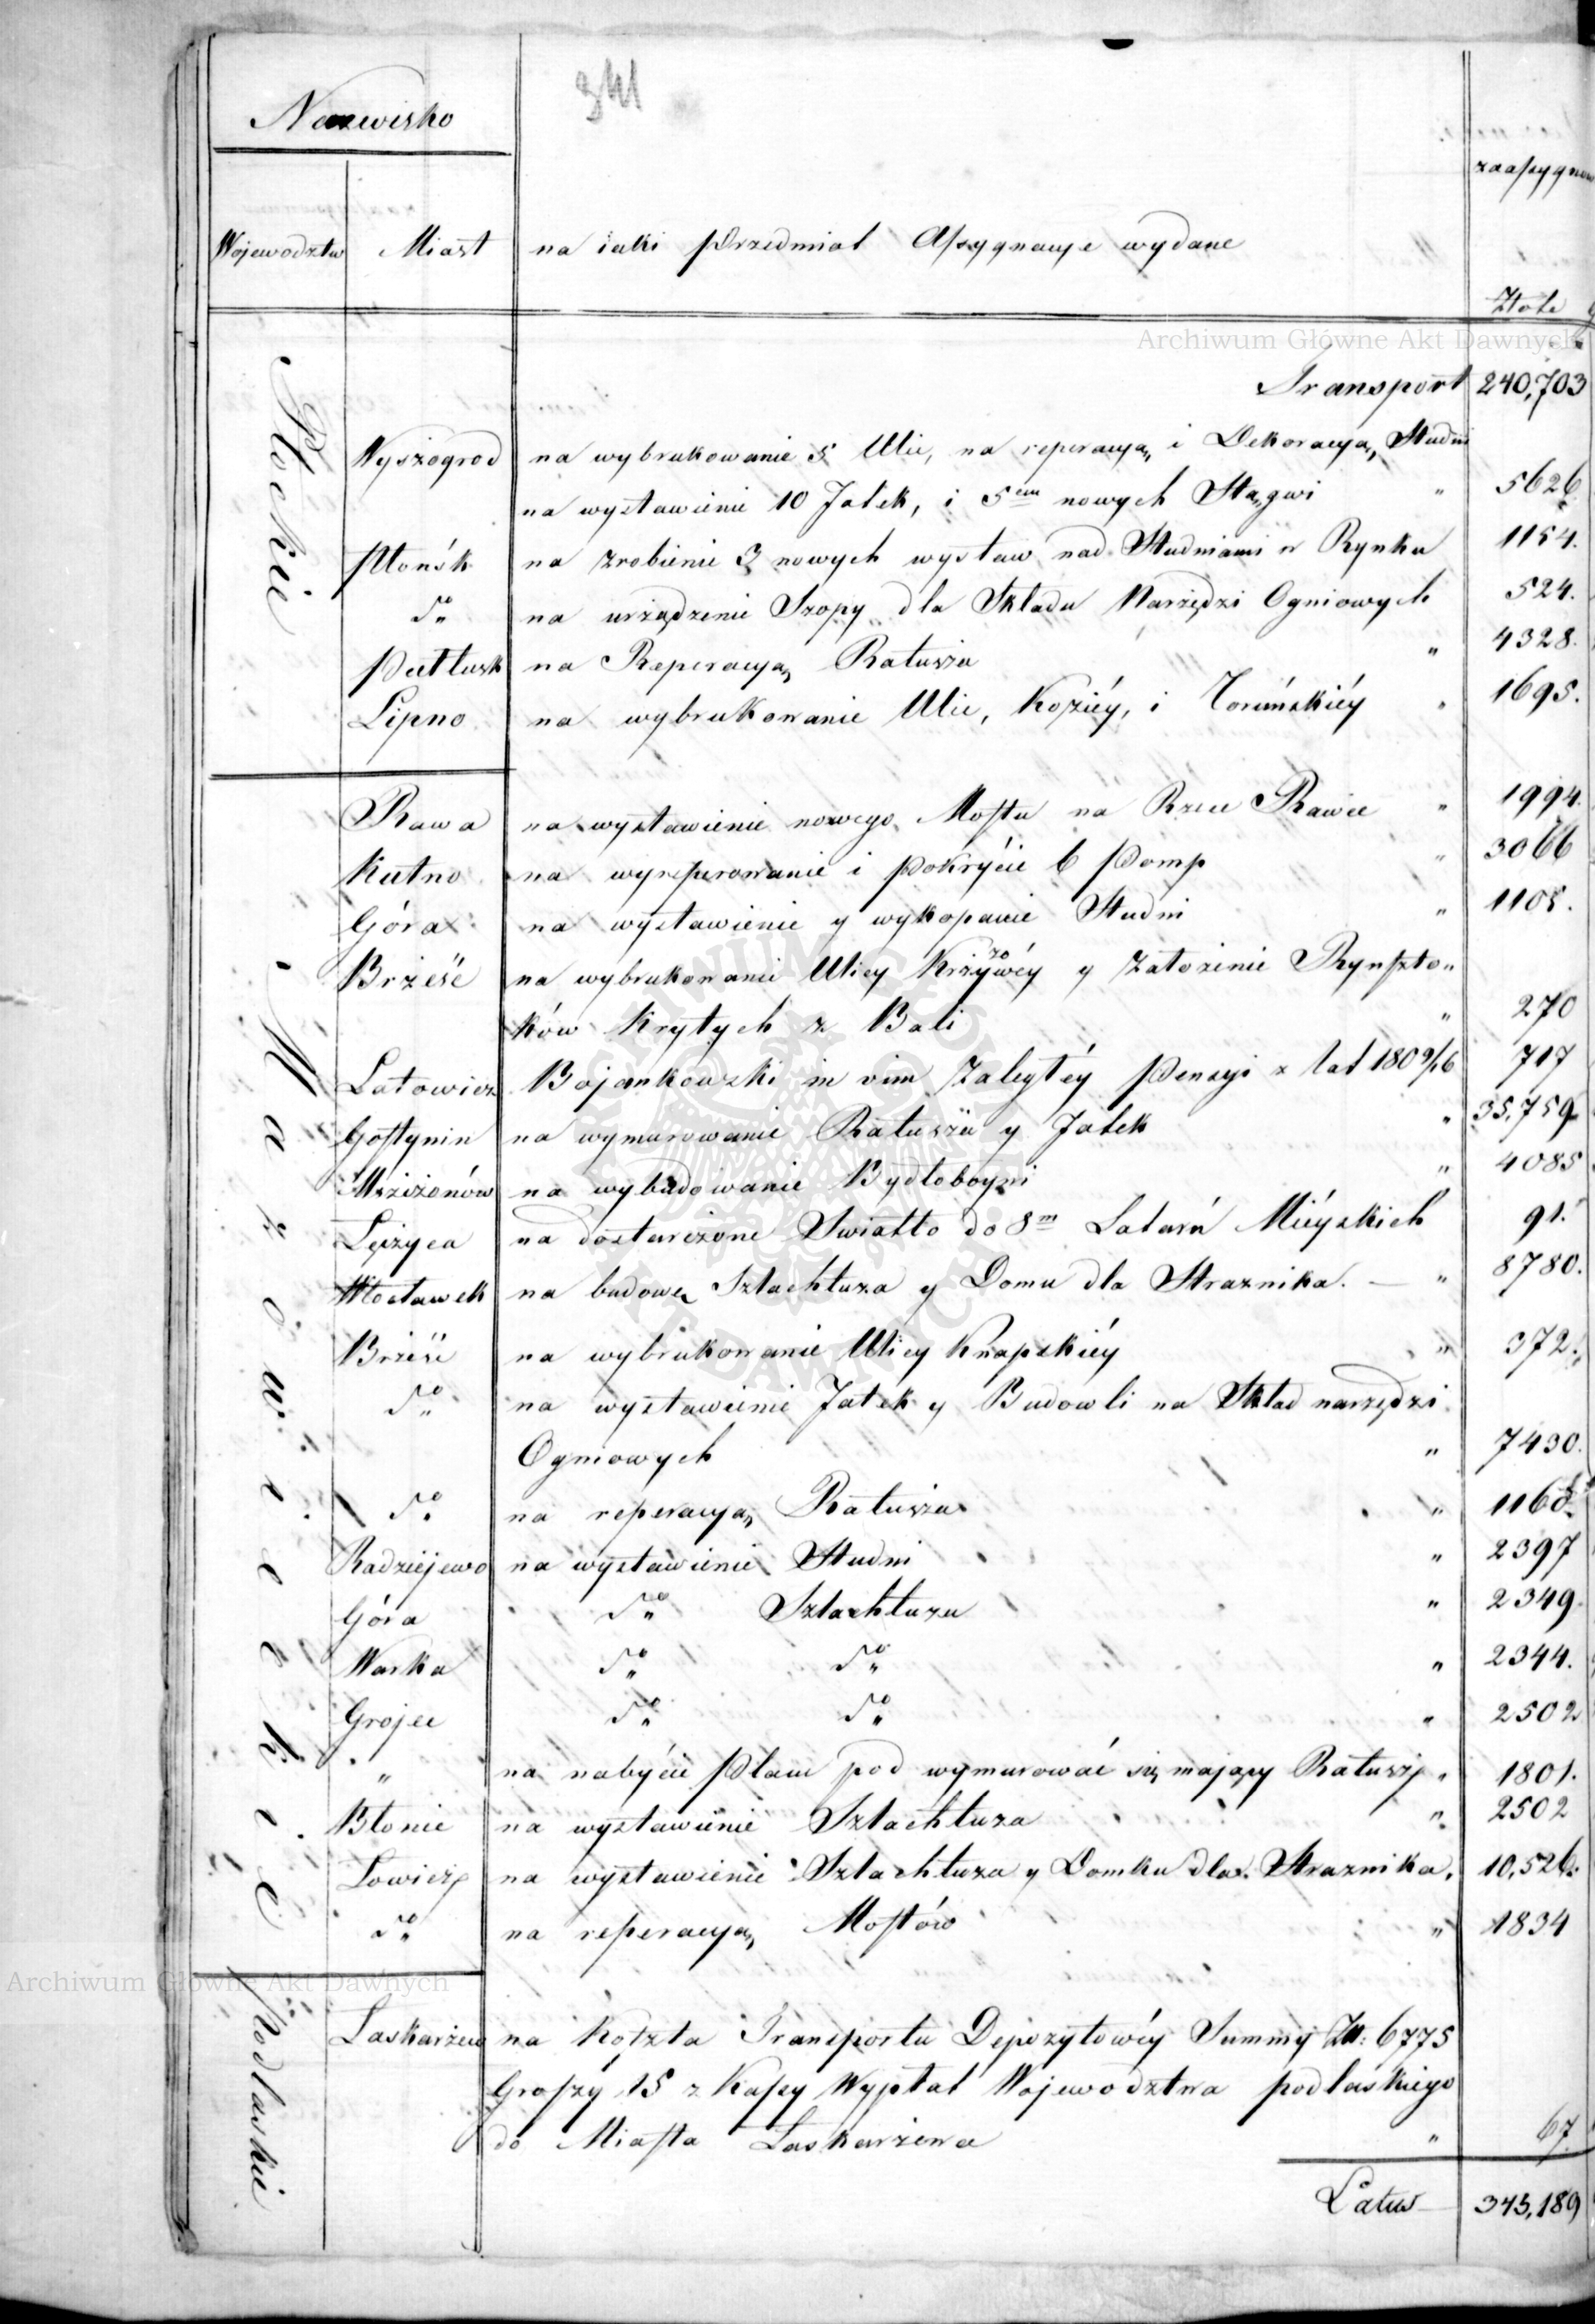 341
Nazwisko
zaassygnow
Wojewodztw Miast na iaki Przedmiot Assygnacye wydane
Złote
Archiwum Główne Akt Dawnych
Płockie
Transport 240,703
Wyszogrod na wybrukowanie 5 Ulic, na reperacyą, i Dekoracyą, Studni
na wystawienie 10 Jatek, i 5cm nowych Stągwi " 5626
Płońsk na zrobienie 3 nowych wystaw nad Studniami w Rynku 1154.
do na urządzenie Szopy dla Składu Narzędzi Ogniowych 524.
Pułtusk na Reperacyą Ratusza " 4328.
Lipno na wybrukowanie Ulic, Koziéy, i Toruńskiéy " 1695.
Mazowieckie
Rawa na wystawienie nowego Mostu na Rzece Rawce " 1994.
Kutno na wyreperowanie i Pokrycie 6 Pomp " 3066
Góra na wystawienie y wykopanie Studni " 1105.
Brześć na wybrukowanie Ulicy Krzyżowéy y Założenie Rynszto„
ków Krytych z Bali " 270
Latowicz Bojankowski in vim Zaległéy Pensyi z lat 1809/16 717
Gostynin na wymurowanie Ratusza y Jatek " 35,759
Mszczonów na wybudowanie Bydłoboyni " 4085
Łęczyca na dostarczone Swiatło do 8m Latarń Mieyskich 91.
Włocławek na budowę Szlachtuza y Domu dla Straznika. — " 8780.
Brześć na wybrukowanie Ulicy Knapskiéy " 372.
do na wystawienie Jatek y Budowli na Skład narzędzi
Ogniowych " 7430.
do na reperacyą Ratusza " 1160
Radziejewo na wystawienie Studni " 2397
Góra do Szlachtuza " 2349
Warka do do " 2344.
Grojec do do " 2502
" na nabycie Placu pod wymurować się maiący Ratusz " 1801.
Błonie na wystawienie Szlachtuza " 2502
Łowicz na wystawienie Szlachtuza y Domku dla Straznika. 10,526.
do na reperacyą Mostów " 1834
Archiwum Główne Akt Dawnych
Podlaskie
Laskarzew na Koszta Transportu Depozytowéy Summy Zł: 6775
Groszy 15 z Kassy Wypłat Wojewodztwa podlaskiego
do Miasta Laskarzewa " 67
Latus 345,189